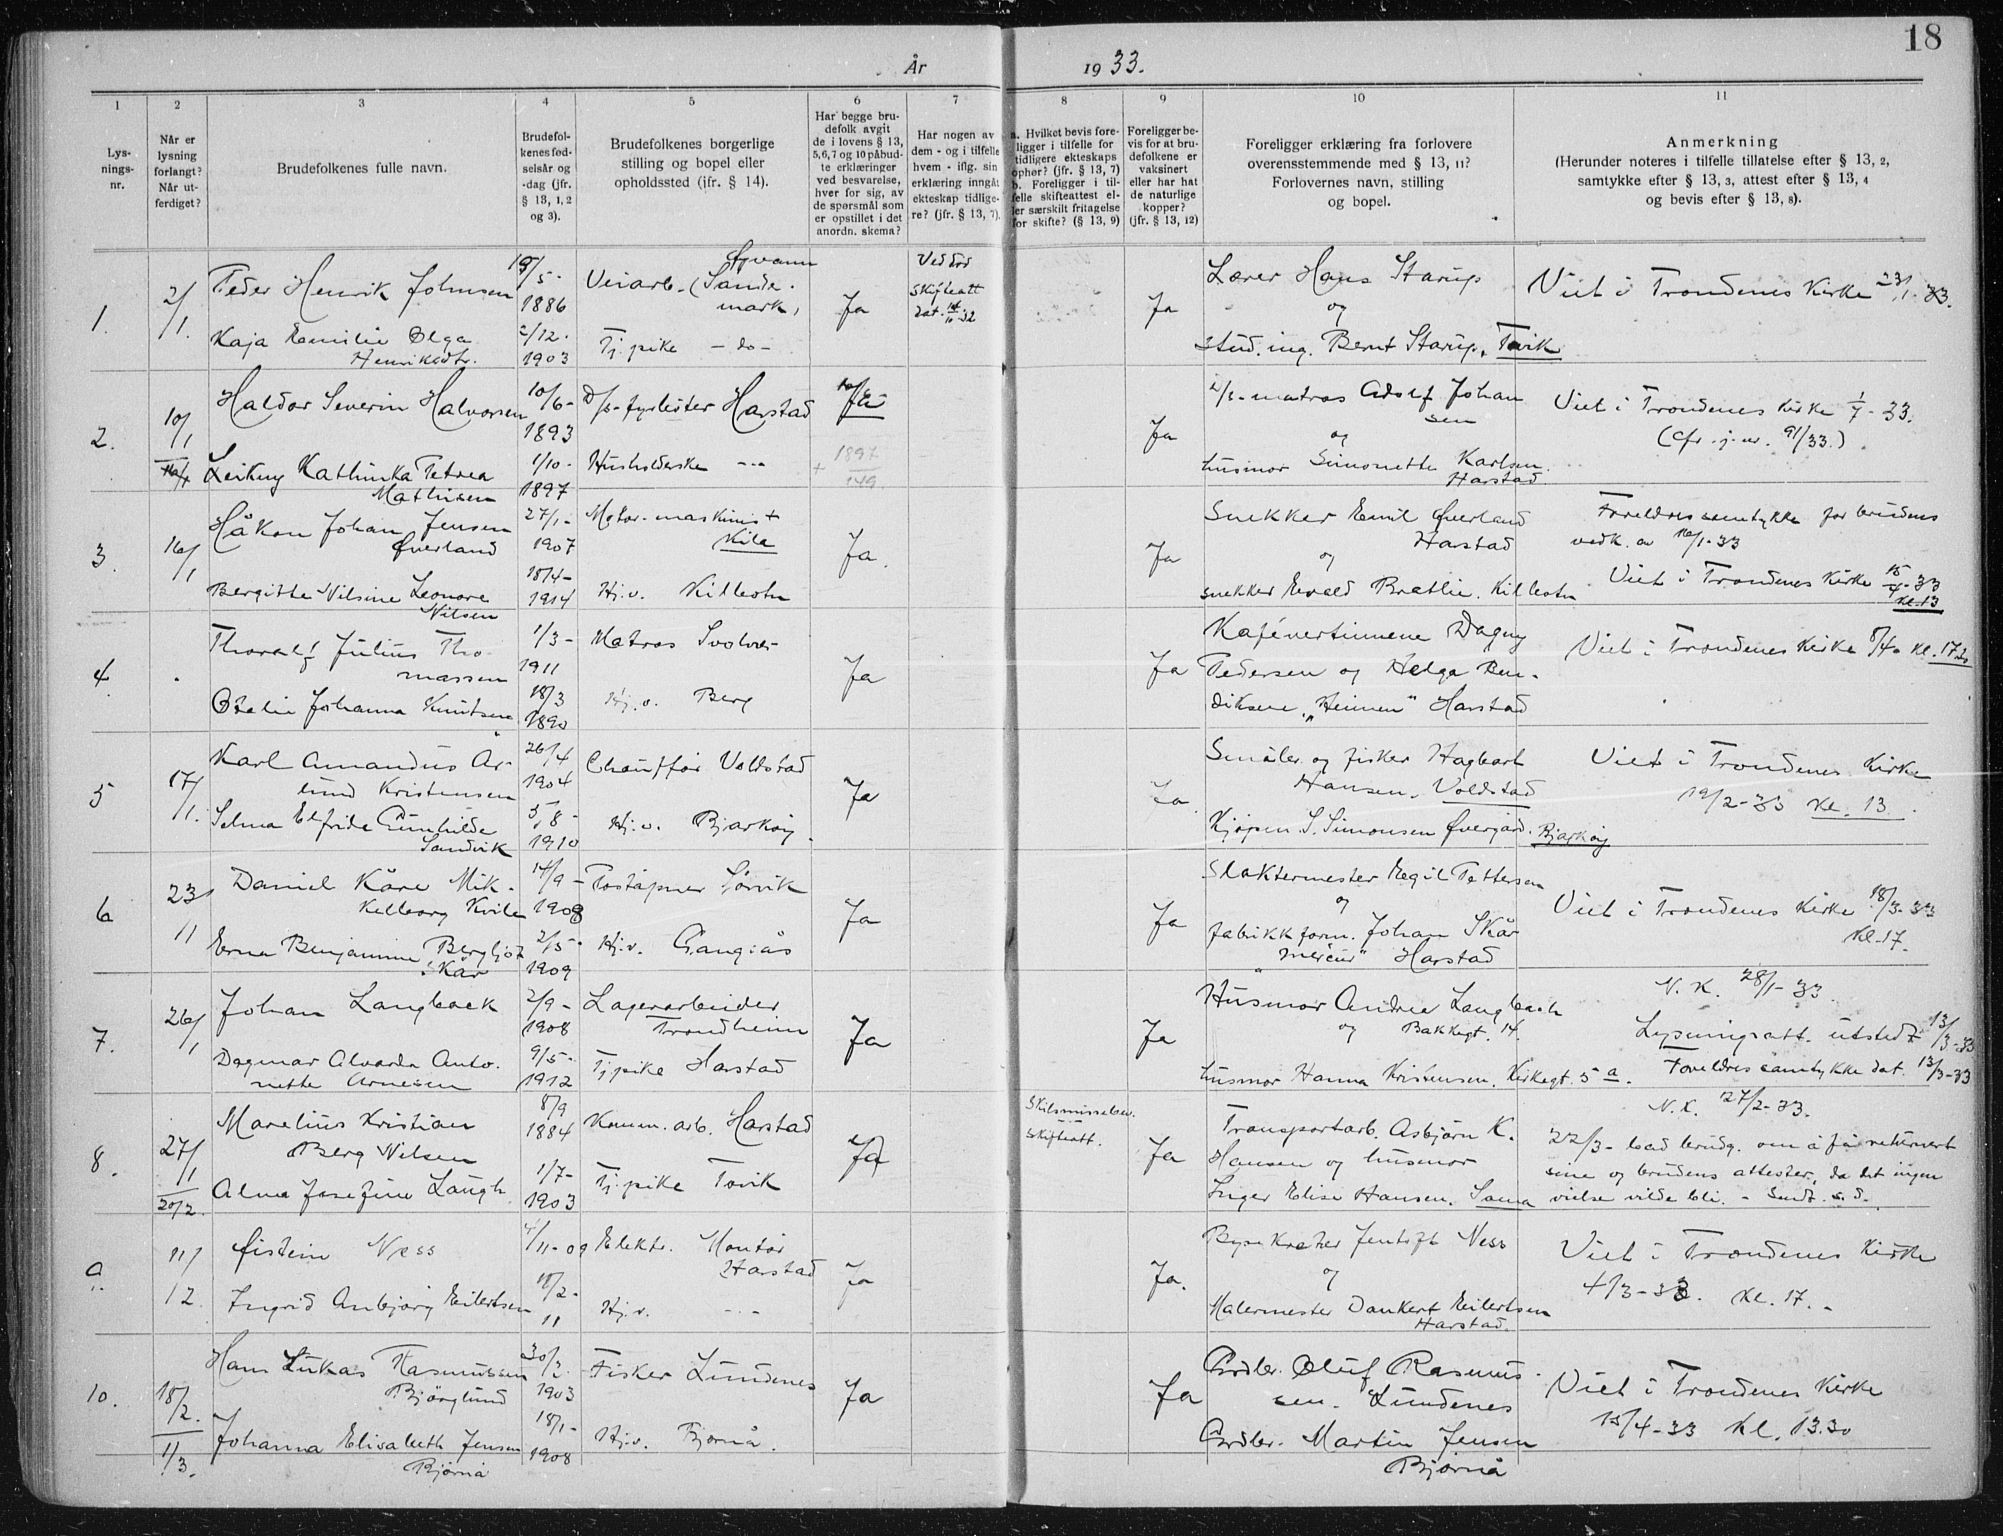 18
År 1933.
1 2 3 4 5 6 7 8 9 10 11
Lys-
nings-
nr.
Når er
lysning
forlangt?
Når ut-
ferdiget?
Brudefolkenes fulle navn.
Brudefol-
kenes fød-
selsår og
-dag (jfr.
§ 13, 1, 2
og 3).
Brudefolkenes borgerlige
stilling og bopel eller
opholdssted (jfr. § 14).
Har begge bru-
defolk avgit
de i lovens § 13,
5, 6, 7 og 10 påbud-
te erklæringer
ved besvarelse,
hver for sig, av
de spørsmål som
er opstillet i det
anordn. skema?
Har nogen av
dem - og i tilfelle
hvem - iflg. sin
erklæring inngåt
ekteskap tidlige-
re? (jfr. § 13, 7).
a. Hvilket bevis fore-
ligger i tilfelle for
tidligere ekteskaps
ophør? (jfr. § 13, 7)
b. Foreligger i til-
felle skifteattest el-
ler særskilt fritagelse
for skifte? (§ 13, 9)
Foreligger be-
vis for at bru-
defolkene er
vaksinert
eller har hat
de naturlige
kopper?
(jfr. § 13, 12)
Foreligger erklæring fra forlovere
overensstemmende med § 13, 11?
Forlovernes navn, stilling
og bopel.
Anmerkning
(Herunder noteres i tilfelle tillatelse efter § 13, 2,
samtykke efter § 13, 3, attest efter § 13, 4
og bevis efter § 13, 8).
1. 2/1.
Peder Henrik Johnsen
19/5-
1886
Veiarb. (Sande-
mark,
Ja
Ved død
Skifteatt
Ja
Lærer Hans Starup
og
stud. ing. Bernt Starup, Tovik
Viet i Trondenes Kirke 23/1-33.
Kaja Emilie Olga
Henriksdtr.
2/12-
1903
Tj.pike - do -
2. 10/1
Haldor Severin Halvorsen
10/6-
1893
D/s-fyrbøter Harstad
Ja
Ja
matros Adolf Johan
sen
og
husmor Simonette Karlsen
Harstad
Viet i Trondenes Kirke 1/7-33.
(Cfr. j.nr. 91/33.)
Kathinka Petrea
Mathisen
1/10-
1897
Husholderske -"-
+ 1897
149
3. 16/1
Håkon Johan Jensen
Øverland
27/1-
1907
Motor-maskinist
Kila
Ja.
Ja
Snekker Emil Øverland
Harstad
og
snekker Evald Bratlie. Kilbotn
Foreldres samtykke for brudens
vedk. av 16/1-33
Viet i Trondenes Kirke 15/4-33
kl. 13
Bergitte Nilsine Leonore
Nilsen
18/4-
1914
Hj.v. Kilbotn
4. "
Thoralf Julius Tho-
massen
1/3-
1911
Matros Svolvær
Ja
Ja
Kafévertinnene Dagny
Pedersen og Helga Ben-
diksen, "Heimen" Harstad
Viet i Trondenes Kirke 8/4. kl. 17.30
Johanna Knutsen
18/3
1890
Hj.v. Berg
5 17/1.
Karl Amandus Ar-
lund Kristensen
26/4
1904
Chauffør Voldstad
Ja
Ja
Småbr. og fisker Hagbart
Hansen, Voldstad
Kjøpm. S. Simonsen Øvergård. Bjarkøy
Viet i Trondenes Kirke
19/2-33 kl. 13.
Selma Elfride Gunhilde
Sandvik
5/8-
1910
Hj.v. Bjarkøy.
6 23/1
Daniel Kåre Mik-
kelborg Kvile
14/9-
1908
Poståpner Sørvik
Ja
Ja
Slaktermester Egil Pettersen
og
fabrikkform. Johan Skår
"Mercur" Harstad
Viet i Trondenes Kirke 18/3-33
kl. 17.
Erna Benjamine Bergljot
Skår
2/5-
1909
Hj.v. Gangsås
7. 26/1
Johan Langback
2/9-
1908
Lagerarbeider
Trondheim
Ja
Ja
Husmor Andrea Langbach
og Bakkegt. 14.
husmor Hanna Kristensen. Kirkegt. 5 a.
N.K. 28/1-33.
Lysningsatt. utstedt 13/3-33
Foreldres samtykke dat. 13/3-33
Dagmar Alvarda Anto-
nette Arnesen
9/5-
1912
Tj.pike Harstad
8. 27/1
20/2.
Marelius Kristian
Berg Nilsen
8/9
1884
Komm. arb. Harstad
Ja
Skilsmissebev.
Skifteatt.
Ja
Transportarb. Asbjørn K.
Hansen og husmor
Inger Elise Hansen. Sama
N.K. 27/2-33.
22/3- bad brudg. om å få returnert
sine og brudens attester, da det ingen
vielse vilde bli. - Sendt s.d.
Alma Josefine Laugh.
1/7-
1903
Tj.pike Tovik
9. 11/12
Øistein Ness
4/11-09
Elektr. Montør
Harstad
Ja
Ja.
Bysekretær Jentoft Ness
og
Malermester Dankert Eilertsen
Harstad.
Viet i Trondenes Kirke
4/3-33. kl. 17.-
Ingrid Anbjørg Eilertsen
18/2-
11
Hj.v. -"-
10. 18/2.
11/3.
Hans Lukas Rasmussen
Bjørglund
30/7.
1903
Fisker Lundenes
Ja
Ja
Grdbr. Oluf Rasmus-
sen. Lundenes
Grdbr. Martin Jensen
Bjørnå
Viet i Trondenes Kirke
15/4-33 kl. 13.30
Johanna Elisabeth Jensen
Bjørnå
18/1-
1908
Hj.v. Bjørnå.